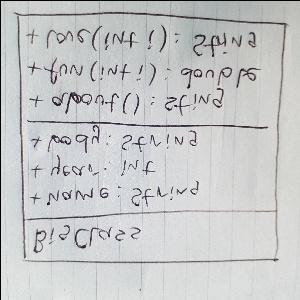 BigClass
+ name: String
+ year: int
+ body: String
+ about(): String
+ fun(int i): double
+ love(int i): String